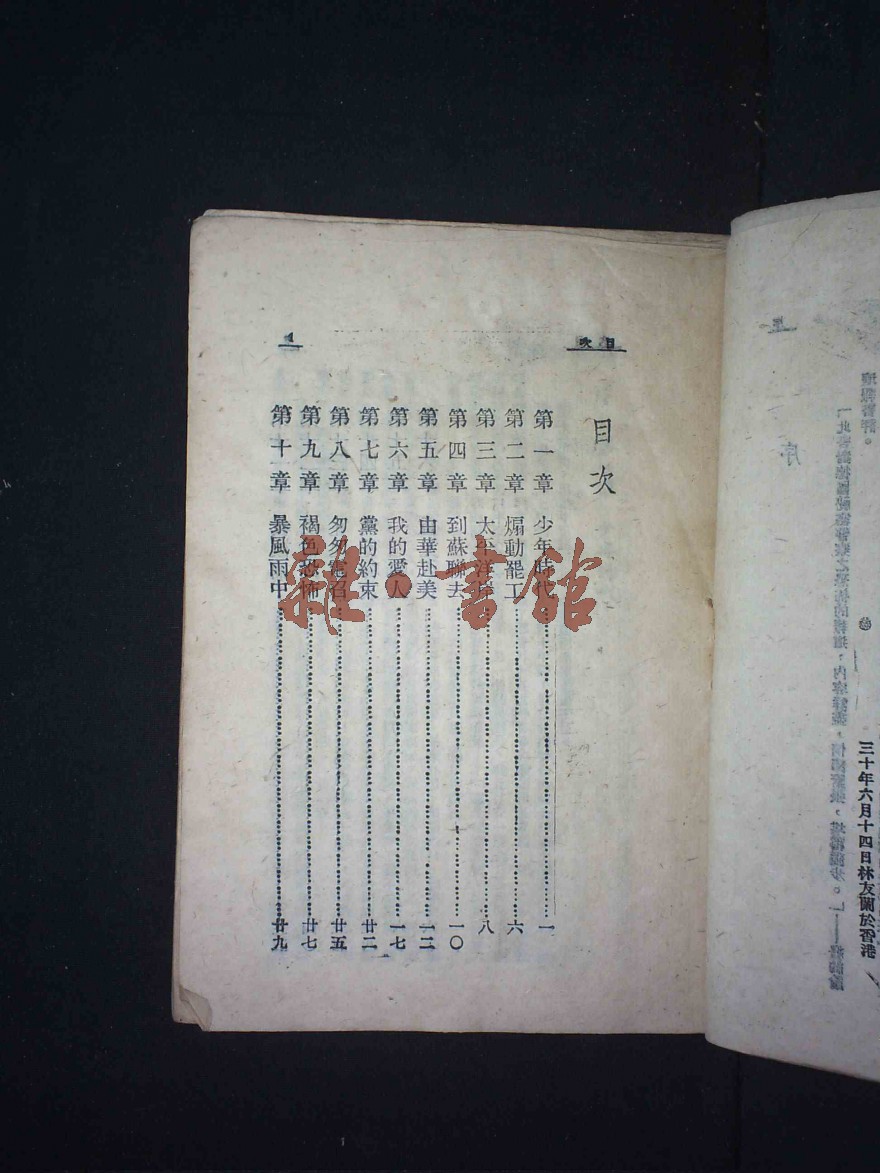 三十年六月十四日林友蘭於香港
序
目次
1
目次
第一章 少年時代……一
第二章 煽動罷工……六
第三章 太平洋……八
第四章 到蘇聯去……一〇
第五章 由華赴美……一二
第六章 我的愛人……一七
第七章 黨的約束……廿二
第八章 匆匆電召……廿五
第九章 褐色恐怖……廿七
第十章 暴風雨中……廿九
雜·書館